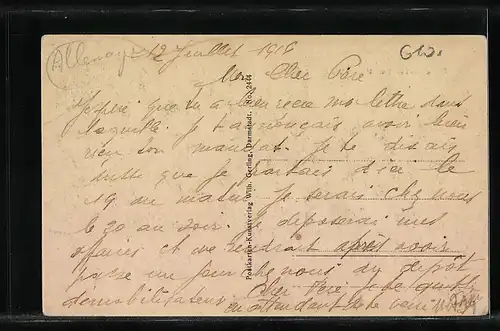 Allemagne 12 Juillet 1919
Mon Cher Père
J'espère que tu as bien reçu ma lettre dans
laquelle je t'annonçais avoir bien
reçu ton mandat. Je te disais
ensuite que je partais d'ici le
19 au matin je serais chez nous
le 20 au soir. Je déposerai mes
affaires et me rendrait après avoir
passé un jour chez nous au dépôt
démobilisateur. Cher Père je te quitte
en attendant de te voir
Postkarten-Kunstverlag Wilh. Gerling, Darmstadt. No. 2444